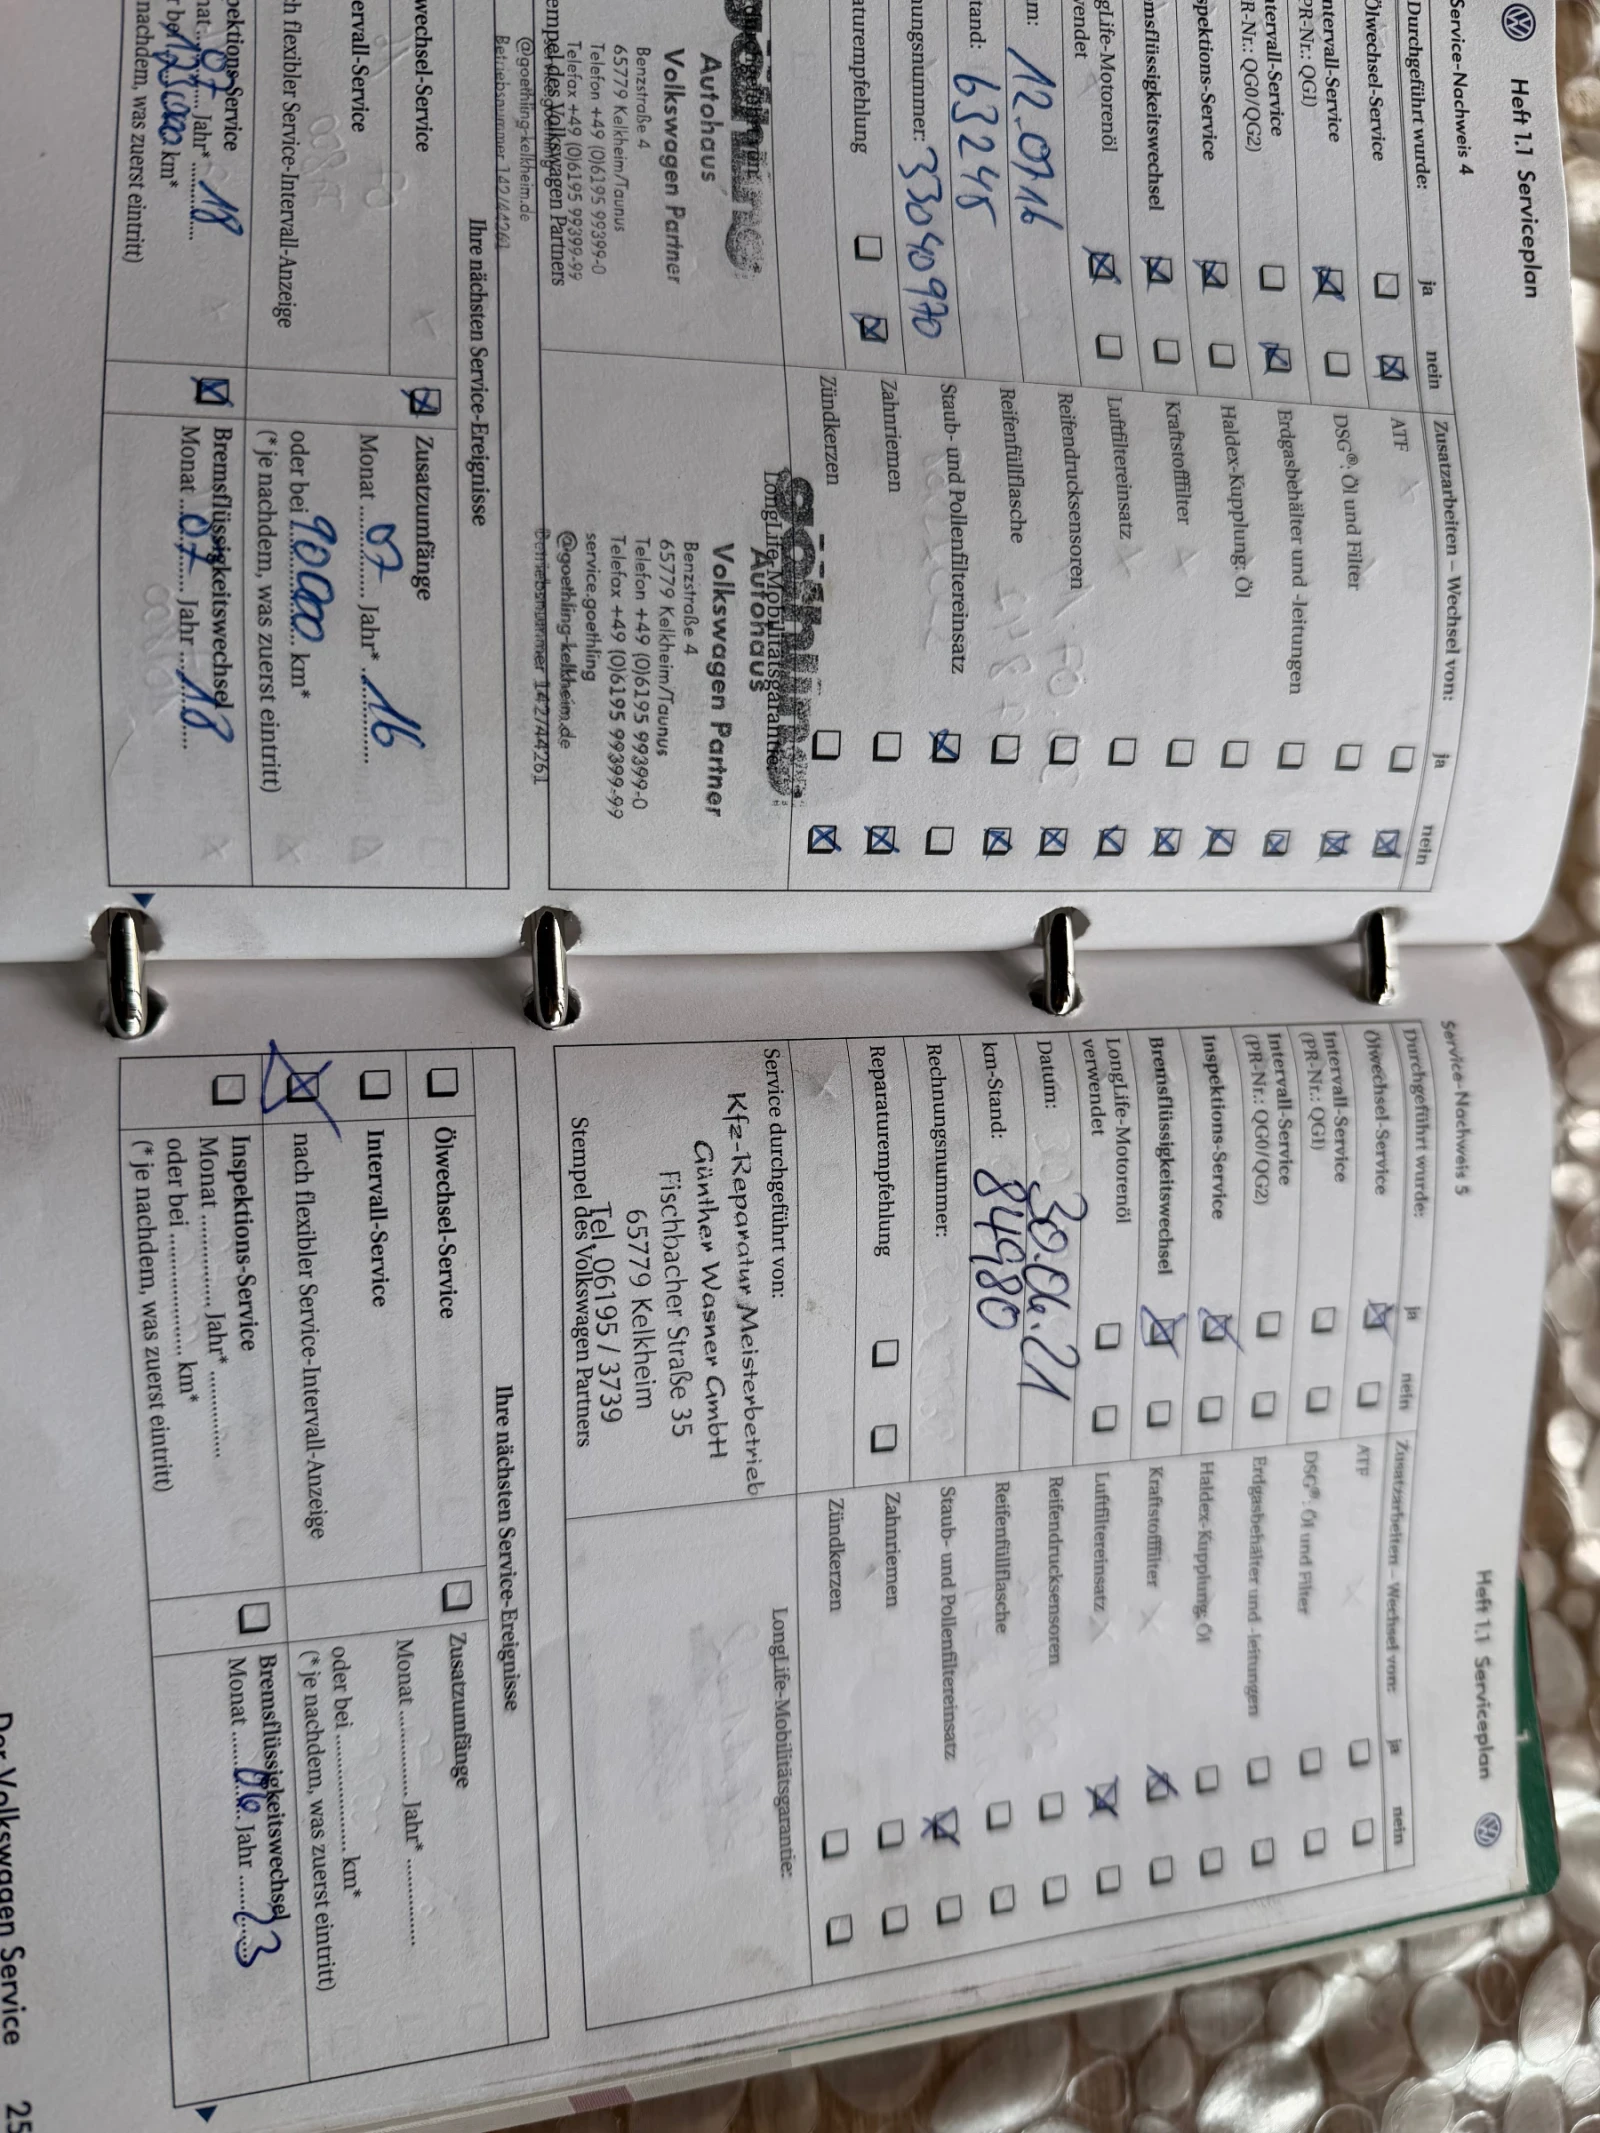 Heft 1.1 Serviceplan
Service-Nachweis 4
Durchgeführt wurde: ja nein
Ölwechsel-Service
ntervall-Service
PR-Nr.: QG1)
ntervall-Service
R-Nr.: QG0/QG2)
spektions-Service
msflüssigkeitswechsel
gLife-Motorenöl
endet
m: 12.07.16
tand: 63245
nungsnummer: 33040970
aturempfehlung
Zusatzarbeiten – Wechsel von: ja nein
ATF
DSG®: Öl und Filter
Erdgasbehälter und -leitungen
Haldex-Kupplung: Öl
Kraftstofffilter
Luftfiltereinsatz
Reifendrucksensoren
Reifenfüllflasche
Staub- und Pollenfiltereinsatz
Zahnriemen
Zündkerzen
Autohaus
Volkswagen Partner
Benzstraße 4
65779 Kelkheim/Taunus
Telefon +49 (0)6195 99399-0
Telefax +49 (0)6195 99399-99
empel des Volkswagen Partners
@goethling-kelkheim.de
Betriebsnummer 142/44261
LongLife-Mobilitätsgarantie:
Autohaus
Volkswagen Partner
Benzstraße 4
65779 Kelkheim/Taunus
Telefon +49 (0)6195 99399-0
Telefax +49 (0)6195 99399-99
service.goethling
@goethling-kelkheim.de
Betriebsnummer 142/44261
Ihre nächsten Service-Ereignisse
wechsel-Service
ervall-Service
h flexibler Service-Intervall-Anzeige
pektions-Service
nat 07 Jahr* 18
r bei 123000 km*
nachdem, was zuerst eintritt)
Zusatzumfänge
Monat 07 Jahr* 16
oder bei 90000 km*
(* je nachdem, was zuerst eintritt)
Bremsflüssigkeitswechsel
Monat 07 Jahr 18
Heft 1.1 Serviceplan
Service-Nachweis 5
Durchgeführt wurde: ja nein
Ölwechsel-Service
Intervall-Service
(PR-Nr.: QG1)
Intervall-Service
(PR-Nr.: QG0/QG2)
Inspektions-Service
Bremsflüssigkeitswechsel
LongLife-Motorenöl
verwendet
Datum: 30.06.21
km-Stand: 84980
Rechnungsnummer:
Reparaturempfehlung
Zusatzarbeiten – Wechsel von: ja nein
ATF
DSG®: Öl und Filter
Erdgasbehälter und -leitungen
Haldex-Kupplung: Öl
Kraftstofffilter
Luftfiltereinsatz
Reifendrucksensoren
Reifenfüllflasche
Staub- und Pollenfiltereinsatz
Zahnriemen
Zündkerzen
Service durchgeführt von:
Kfz-Reparatur Meisterbetrieb
Günther Wasner GmbH
Fischbacher Straße 35
65779 Kelkheim
Tel. 06195 / 3739
Stempel des Volkswagen Partners
LongLife-Mobilitätsgarantie:
Ihre nächsten Service-Ereignisse
Ölwechsel-Service
Intervall-Service
nach flexibler Service-Intervall-Anzeige
Inspektions-Service
Monat ............ Jahr* ............
oder bei .................. km*
(* je nachdem, was zuerst eintritt)
Zusatzumfänge
Monat ............ Jahr* ............
oder bei .................. km*
(* je nachdem, was zuerst eintritt)
Bremsflüssigkeitswechsel
Monat 06 Jahr 23
Der Volkswagen Service 25